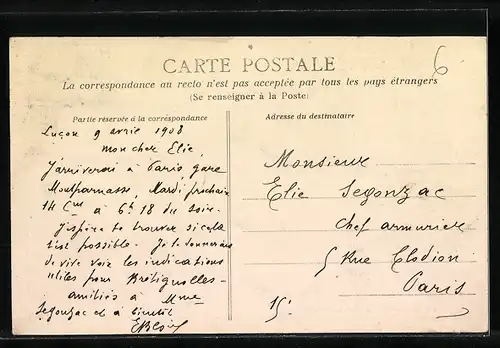 CARTE POSTALE
6
La correspondance au recto n'est pas acceptée par tous les pays étrangers
(Se renseigner à la Poste)
Partie réservée à la correspondance
Luçon 9 avril 1908
mon cher Elie
J'arriverai à Paris, gare
Montparnasse, Mardi prochain
14 à 6h 18 du soir.
J'espère te trouver si cela
t'est possible. Je te donnerai
de vive voix les indications
utiles pour Brétignolles.
amitiés à Mme
Segonzac et à bientôt
Adresse du destinataire
Monsieur
Elie Segonzac
Chef armurier
5 Rue Clodion
Paris
15!